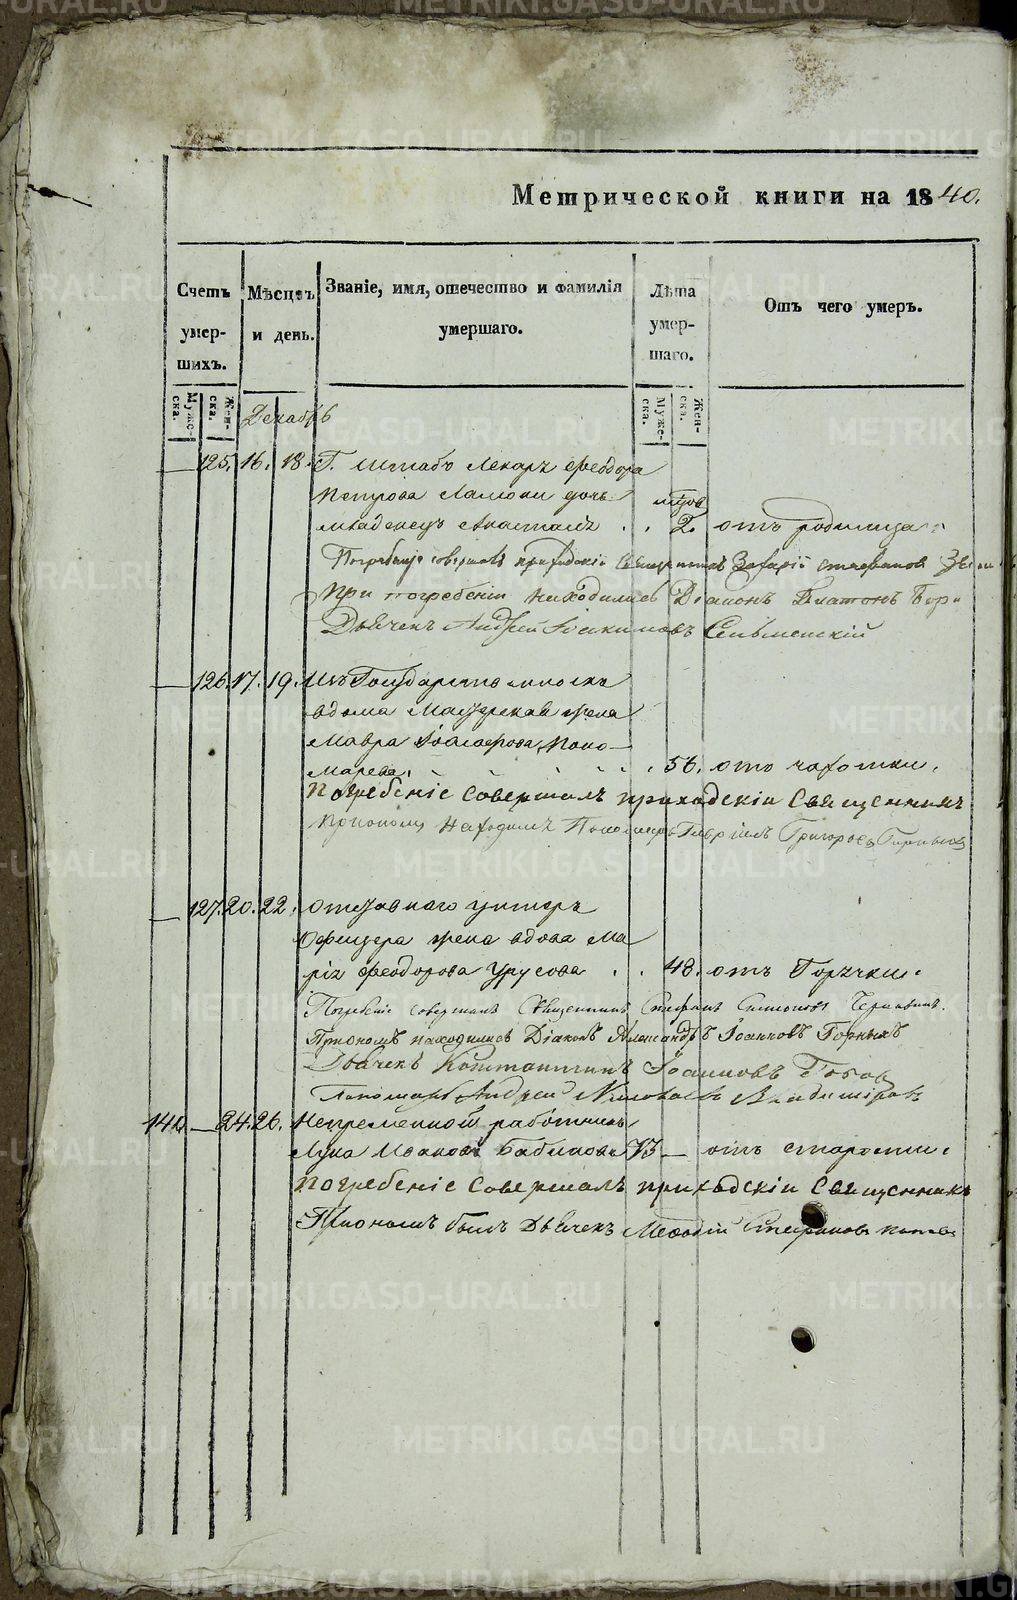 Метрической книги на 1840.
Счетъ умер- шихъ.
Мѣсяцъ и день.
Званіе, имя, отечество и фамилія умершаго.
Лѣта умер- шаго.
Отъ чего умеръ.
Муже- ска.
Жен- ска.
Муже- ска.
Жен- ска.
Декабрь
— 125. 16. 18. Г. Штабъ Лекаря Феодора
Петрова дочь
младенецъ Анастасія . . 2. отъ родимца
Погребеніе совершалъ приходскій Священникъ Захарій Стефановъ
При погребеніи находились Діаконъ Платонъ
Дьячекъ Андрей Іоакимовъ
— 126. 17. 19. Изъ
вдова Мастерская жена
Мавра Поно-
марева. . . . 56. отъ чахотки.
Погребеніе Совершалъ приходскіи Священникъ
При ономъ Находился Пономарь Гавріилъ Григорьевъ
— 127. 20. 22. Отставнаго унтеръ
Офицера жена вдова Ма
рія Феодорова Урусова . . 48. отъ Горячки.
Погребеніе совершалъ Священникъ Стефанъ Симеоновъ
При ономъ находились Діаконъ Александръ Іоанновъ Горныхъ
Дьячекъ Константинъ Іоанновъ
Пономарь Андрей
140. — 24. 26. Непременной работникъ
Лука Ивановъ Бабиновъ 73 — отъ старости.
Погребеніе Совершалъ приходскіи Священникъ
При ономъ былъ Дьячекъ Мефодій Стефановъ Поповъ
METRIKI.GASO-URAL.RU